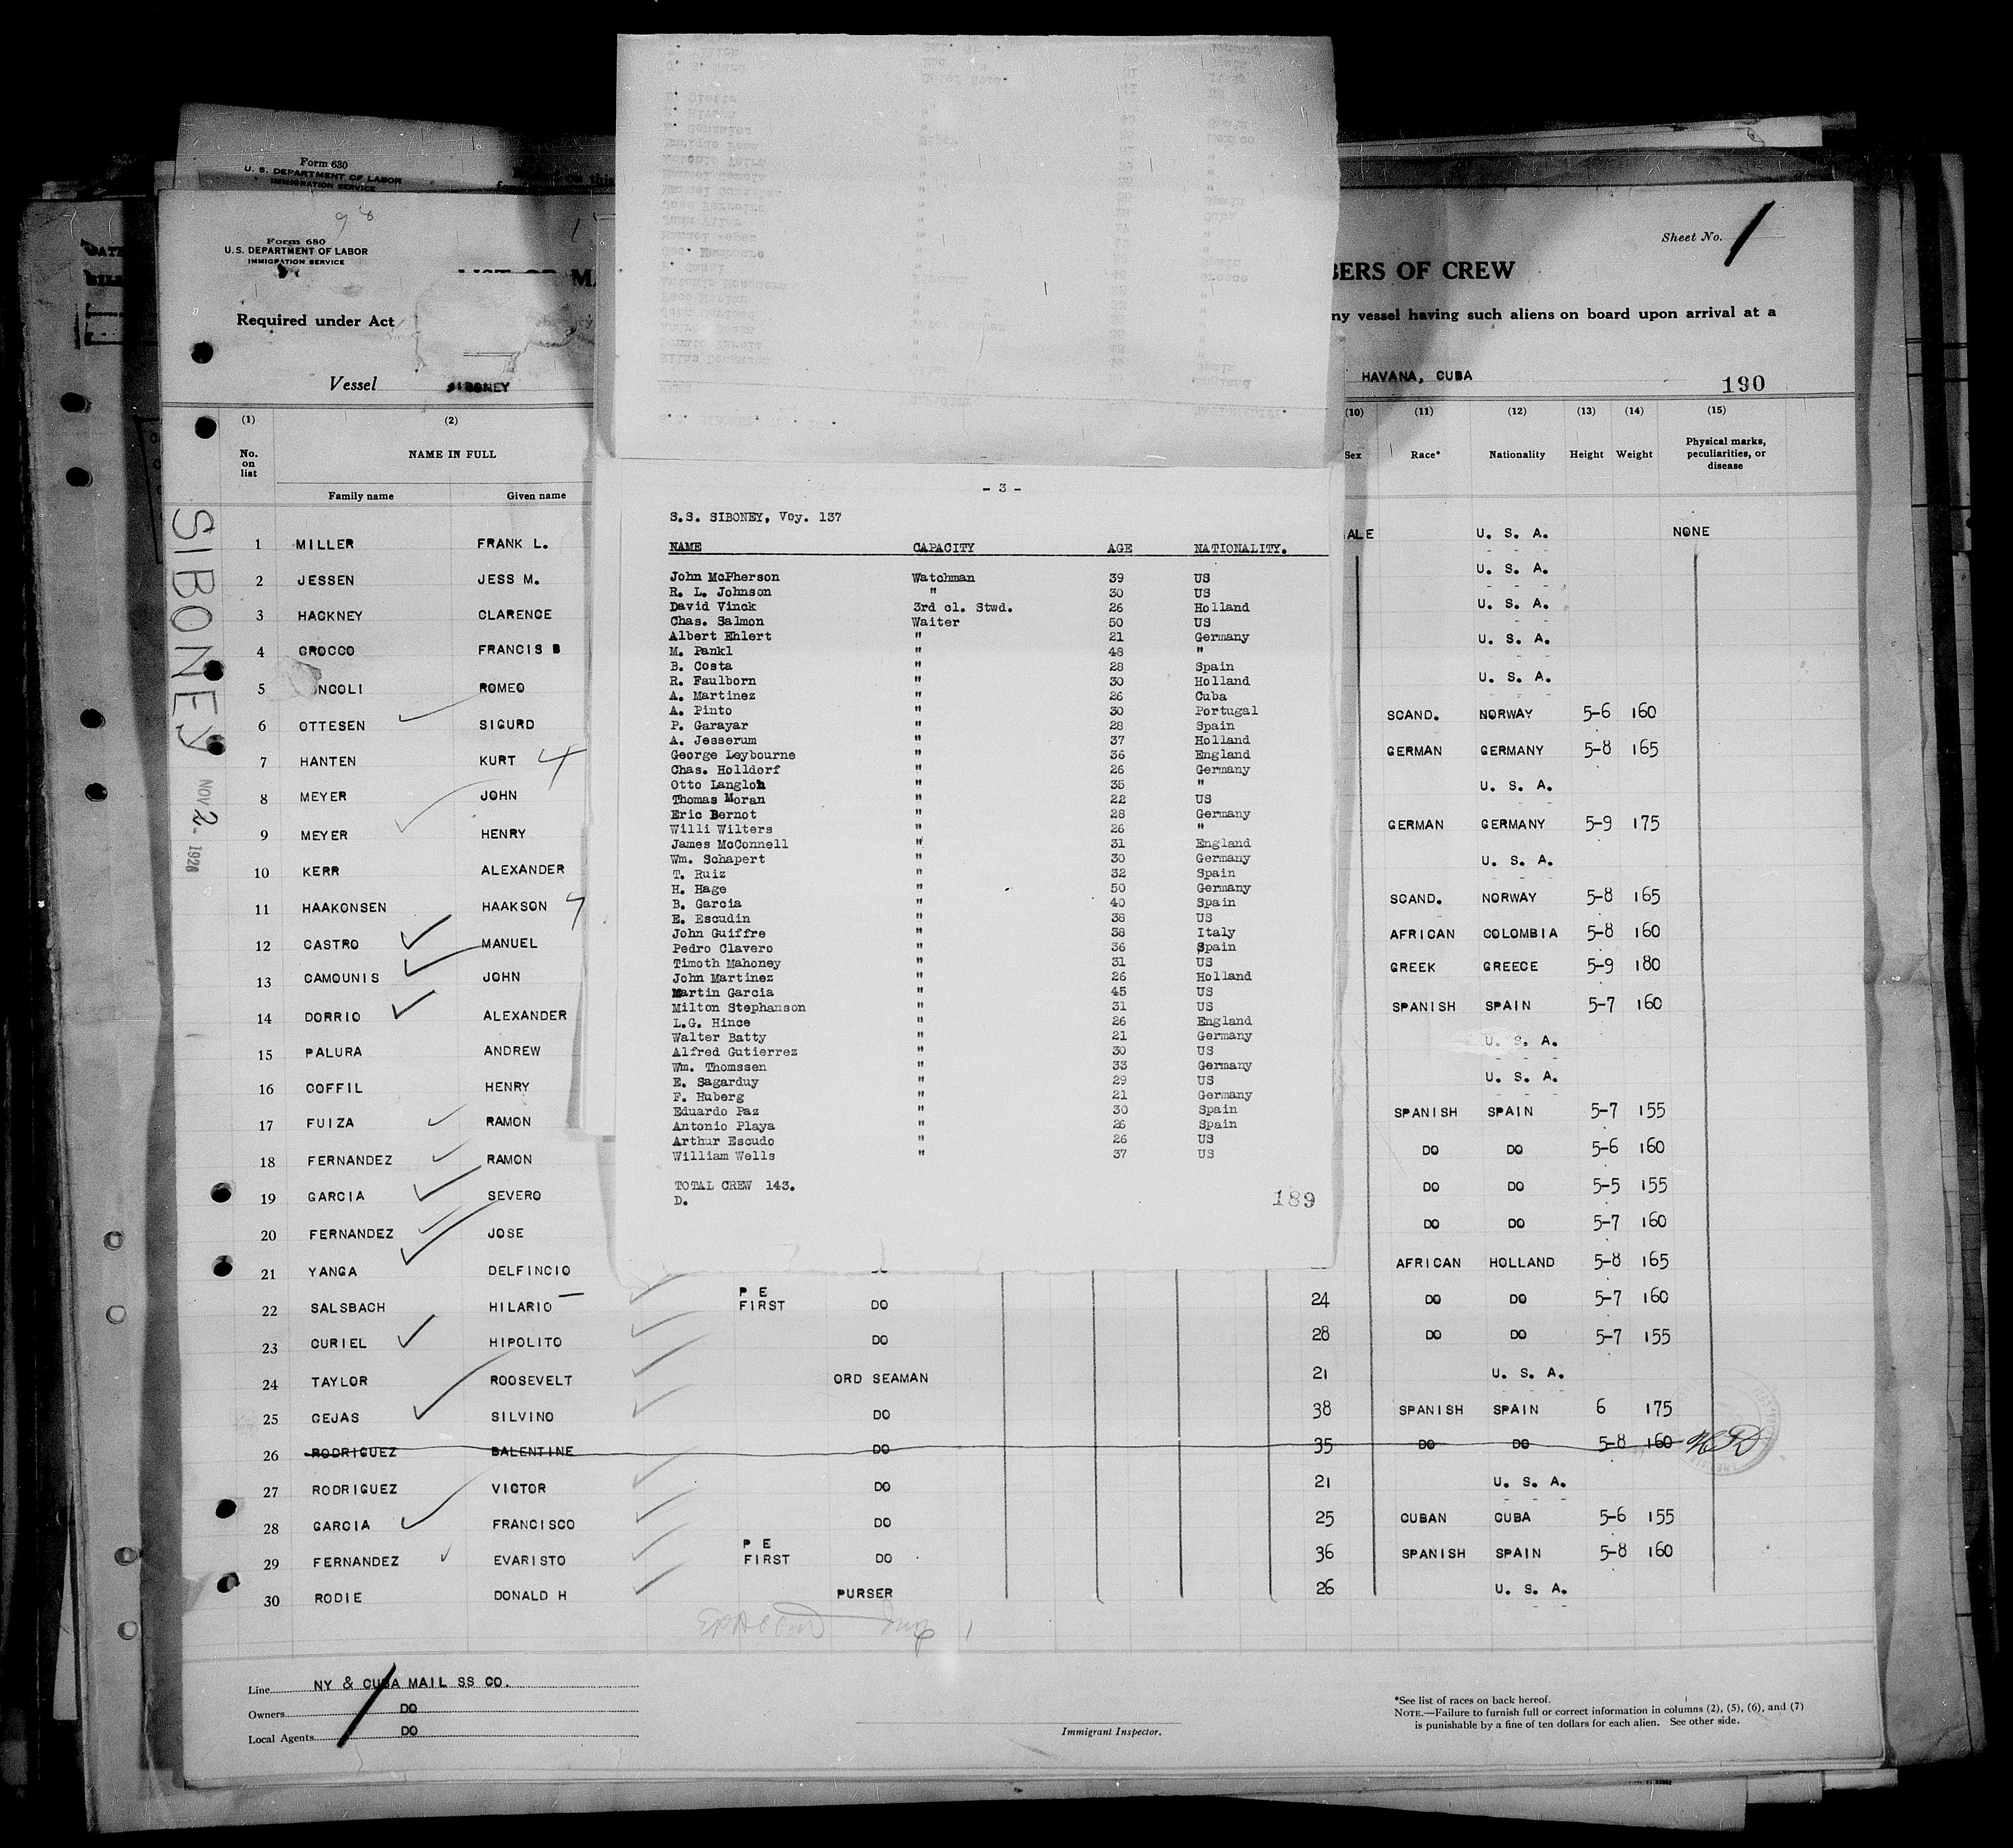 Form 630
U. S. DEPARTMENT OF LABOR
IMMIGRATION SERVICE
98
Form 680
U.S. DEPARTMENT OF LABOR
IMMIGRATION SERVICE
Sheet No. 1
BERS OF CREW
Required under Act
ny vessel having such aliens on board upon arrival at a
Vessel SIBONEY
HAVANA, CUBA
190
(1) (2) (10) (11) (12) (13) (14) (15)
No. on list NAME IN FULL Sex Race* Nationality Height Weight Physical marks, peculiarities, or disease
Family name Given name
SIBONEY
NOV 2 - 1926
1 MILLER FRANK L. ALE U. S. A. NONE
2 JESSEN JESS M. U. S. A.
3 HACKNEY CLARENCE U. S. A.
4 CROCCO FRANCIS B U. S. A.
5 NCOLI ROMEO U. S. A.
6 OTTESEN SIGURD SCAND. NORWAY 5-6 160
7 HANTEN KURT 4 GERMAN GERMANY 5-8 165
8 MEYER JOHN U. S. A.
9 MEYER HENRY GERMAN GERMANY 5-9 175
10 KERR ALEXANDER U. S. A.
11 HAAKONSEN HAAKSON SCAND. NORWAY 5-8 165
12 CASTRO MANUEL AFRICAN COLOMBIA 5-8 160
13 CAMOUNIS JOHN GREEK GREECE 5-9 180
14 DORRIO ALEXANDER SPANISH SPAIN 5-7 160
15 PALURA ANDREW U. S. A.
16 COFFIL HENRY U. S. A.
17 FUIZA RAMON SPANISH SPAIN 5-7 155
18 FERNANDEZ RAMON DO DO 5-6 160
19 GARCIA SEVERO DO DO 5-5 155
20 FERNANDEZ JOSE DO DO 5-7 160
21 YANGA DELFINCIO AFRICAN HOLLAND 5-8 165
22 SALSBACH HILARIO P E FIRST DO 24 DO DO 5-7 160
23 CURIEL HIPOLITO DO 28 DO DO 5-7 155
24 TAYLOR ROOSEVELT ORD SEAMAN 21 U. S. A.
25 CEJAS SILVINO DO 38 SPANISH SPAIN 6 175
26 RODRIGUEZ BALENTINE DO 35 DO DO 5-8 160
27 RODRIGUEZ VICTOR DO 21 U. S. A.
28 GARCIA FRANCISCO DO 25 CUBAN CUBA 5-6 155
29 FERNANDEZ EVARISTO P E FIRST DO 36 SPANISH SPAIN 5-8 160
30 RODIE DONALD H PURSER 26 U. S. A.
Line NY & CUBA MAIL SS CO.
Owners DO
Local Agents DO
Immigrant Inspector.
*See list of races on back hereof.
NOTE.—Failure to furnish full or correct information in columns (2), (5), (6), and (7)
is punishable by a fine of ten dollars for each alien. See other side.
- 3 -
S.S. SIBONEY, Voy. 137
NAME CAPACITY AGE NATIONALITY.
John McPherson Watchman 39 US
R. L. Johnson " 30 US
David Vinck 3rd cl. Stwd. 26 Holland
Chas. Salmon Waiter 50 US
Albert Ehlert " 21 Germany
M. Pankl " 48 "
B. Costa " 28 Spain
R. Faulborn " 30 Holland
A. Martinez " 26 Cuba
A. Pinto " 30 Portugal
P. Garayar " 28 Spain
A. Jesserum " 37 Holland
George Leybourne " 36 England
Chas. Holldorf " 26 Germany
Otto Langloh " 35 "
Thomas Moran " 22 US
Eric Bernot " 28 Germany
Willi Wilters " 26 "
James McConnell " 31 England
Wm. Schapert " 30 Germany
T. Ruiz " 32 Spain
H. Hage " 50 Germany
B. Garcia " 40 Spain
E. Escudin " 38 US
John Guiffre " 38 Italy
Pedro Clavero " 36 Spain
Timoth Mahoney " 31 US
John Martinez " 26 Holland
Martin Garcia " 45 US
Milton Stephanson " 31 US
L.G. Hince " 26 England
Walter Batty " 21 Germany
Alfred Gutierrez " 30 US
Wm. Thomssen " 33 Germany
E. Sagarduy " 29 US
F. Huberg " 21 Germany
Eduardo Paz " 30 Spain
Antonio Playa " 26 Spain
Arthur Escudo " 26 US
William Wells " 37 US
TOTAL CREW 143.
D.
189